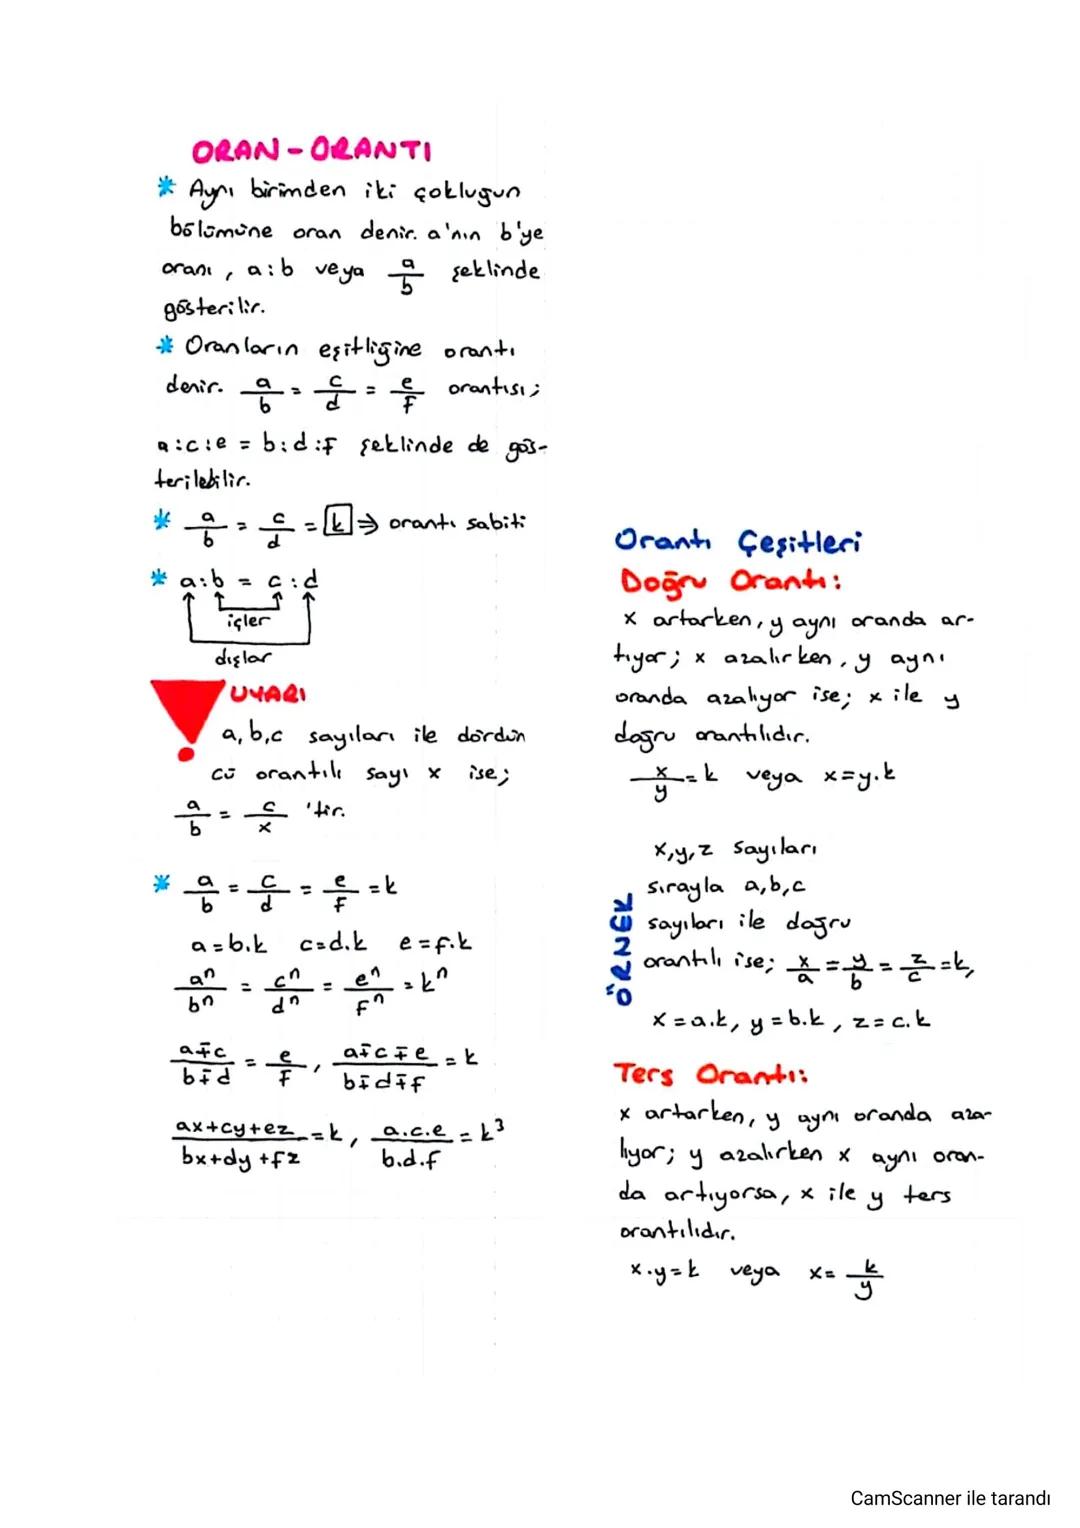 ORAN-ORANTI
* Aynı birimden iki çokluğun
bölümüne oran denir. a'nın b'ye
oranı, a:b veya a/b şeklinde
gösterilir.
* Oranların eşitliğine orantı
denir. a/b = c/d = e/f orantısı;
a:c:e = b:d:f şeklinde de gös-
terilebilir.
* a/b = c/d = k ⇒ orantı sabiti
* a:b = c:d
içler
dışlar
! UYARI
a,b,c sayıları ile dördün
cü orantılı sayı x ise;
a/b = c/x 'tir.
* a/b = c/d = e/f = k
a=b.k c=d.k e=f.k
aⁿ/bⁿ = cⁿ/dⁿ = eⁿ/fⁿ = kⁿ
a∓c/b∓d = e/f, a∓c∓e/b∓d∓f = k
ax+cy+ez/bx+dy+fz = k, a.c.e/b.d.f = k³
Orantı Çeşitleri
Doğru Orantı:
x artarken, y aynı oranda ar-
tıyor; x azalırken, y aynı
oranda azalıyor ise; x ile y
doğru orantılıdır.
x/y = k veya x=y.k
ÖRNEK
x,y,z sayıları
sırayla a,b,c
sayıları ile doğru
orantılı ise; x/a = y/b = z/c = k,
x=a.k, y=b.k, z=c.k
Ters Orantı:
x artarken, y aynı oranda aza-
lıyor; y azalırken x aynı oran-
da artıyorsa, x ile y ters
orantılıdır.
x.y=k veya x= k/y
CamScanner ile tarandı